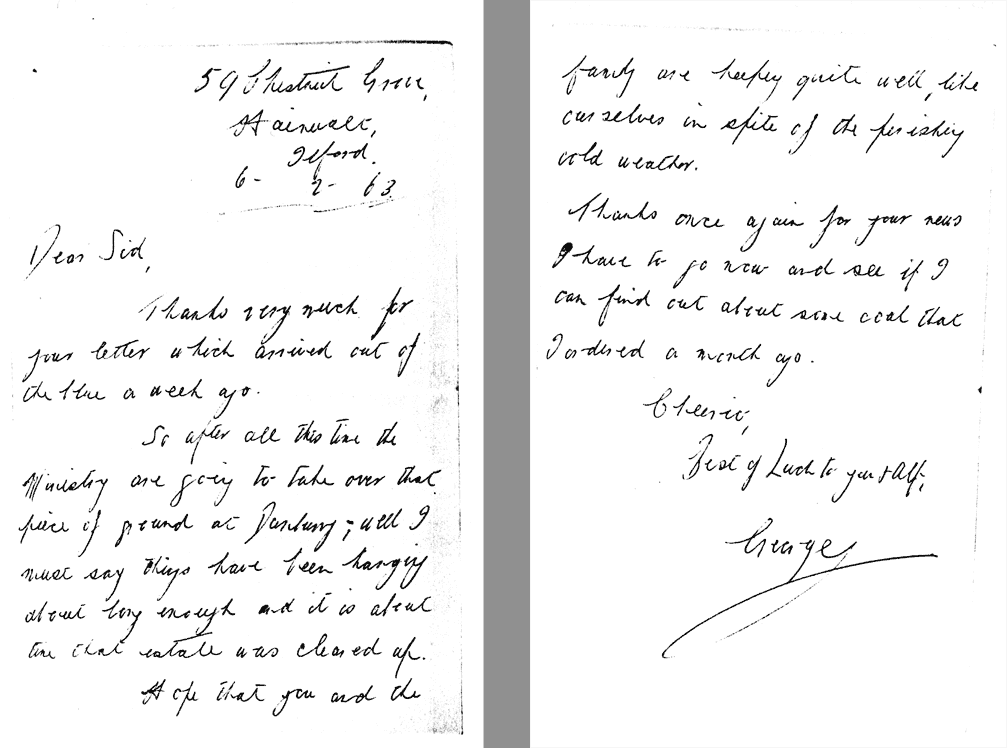 59 Chestnut Grove,
Hainault,
Ilford.
6- 2- 63.
Dear Sid,
Thanks very much for
your letter which arrived out of
the blue a week ago.
So after all this time the
Ministry are going to take over that
piece of ground at Danbury; well I
must say things have been hanging
about long enough and it is about
time that estate was cleared up.
Hope that you and the
family are keeping quite well, like
ourselves in spite of the perishing
cold weather.
Thanks once again for your news
I have to go now and see if I
can find out about some coal that
I ordered a month ago.
Cheerio,
Best of Luck to you & Alf,
George